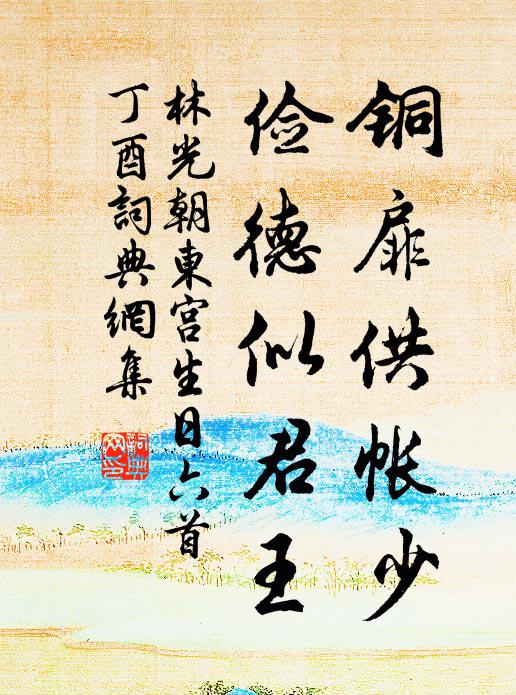 铜扉供帐少
俭德似君王
林光朝東宫生日六首
丁酉詞典網集